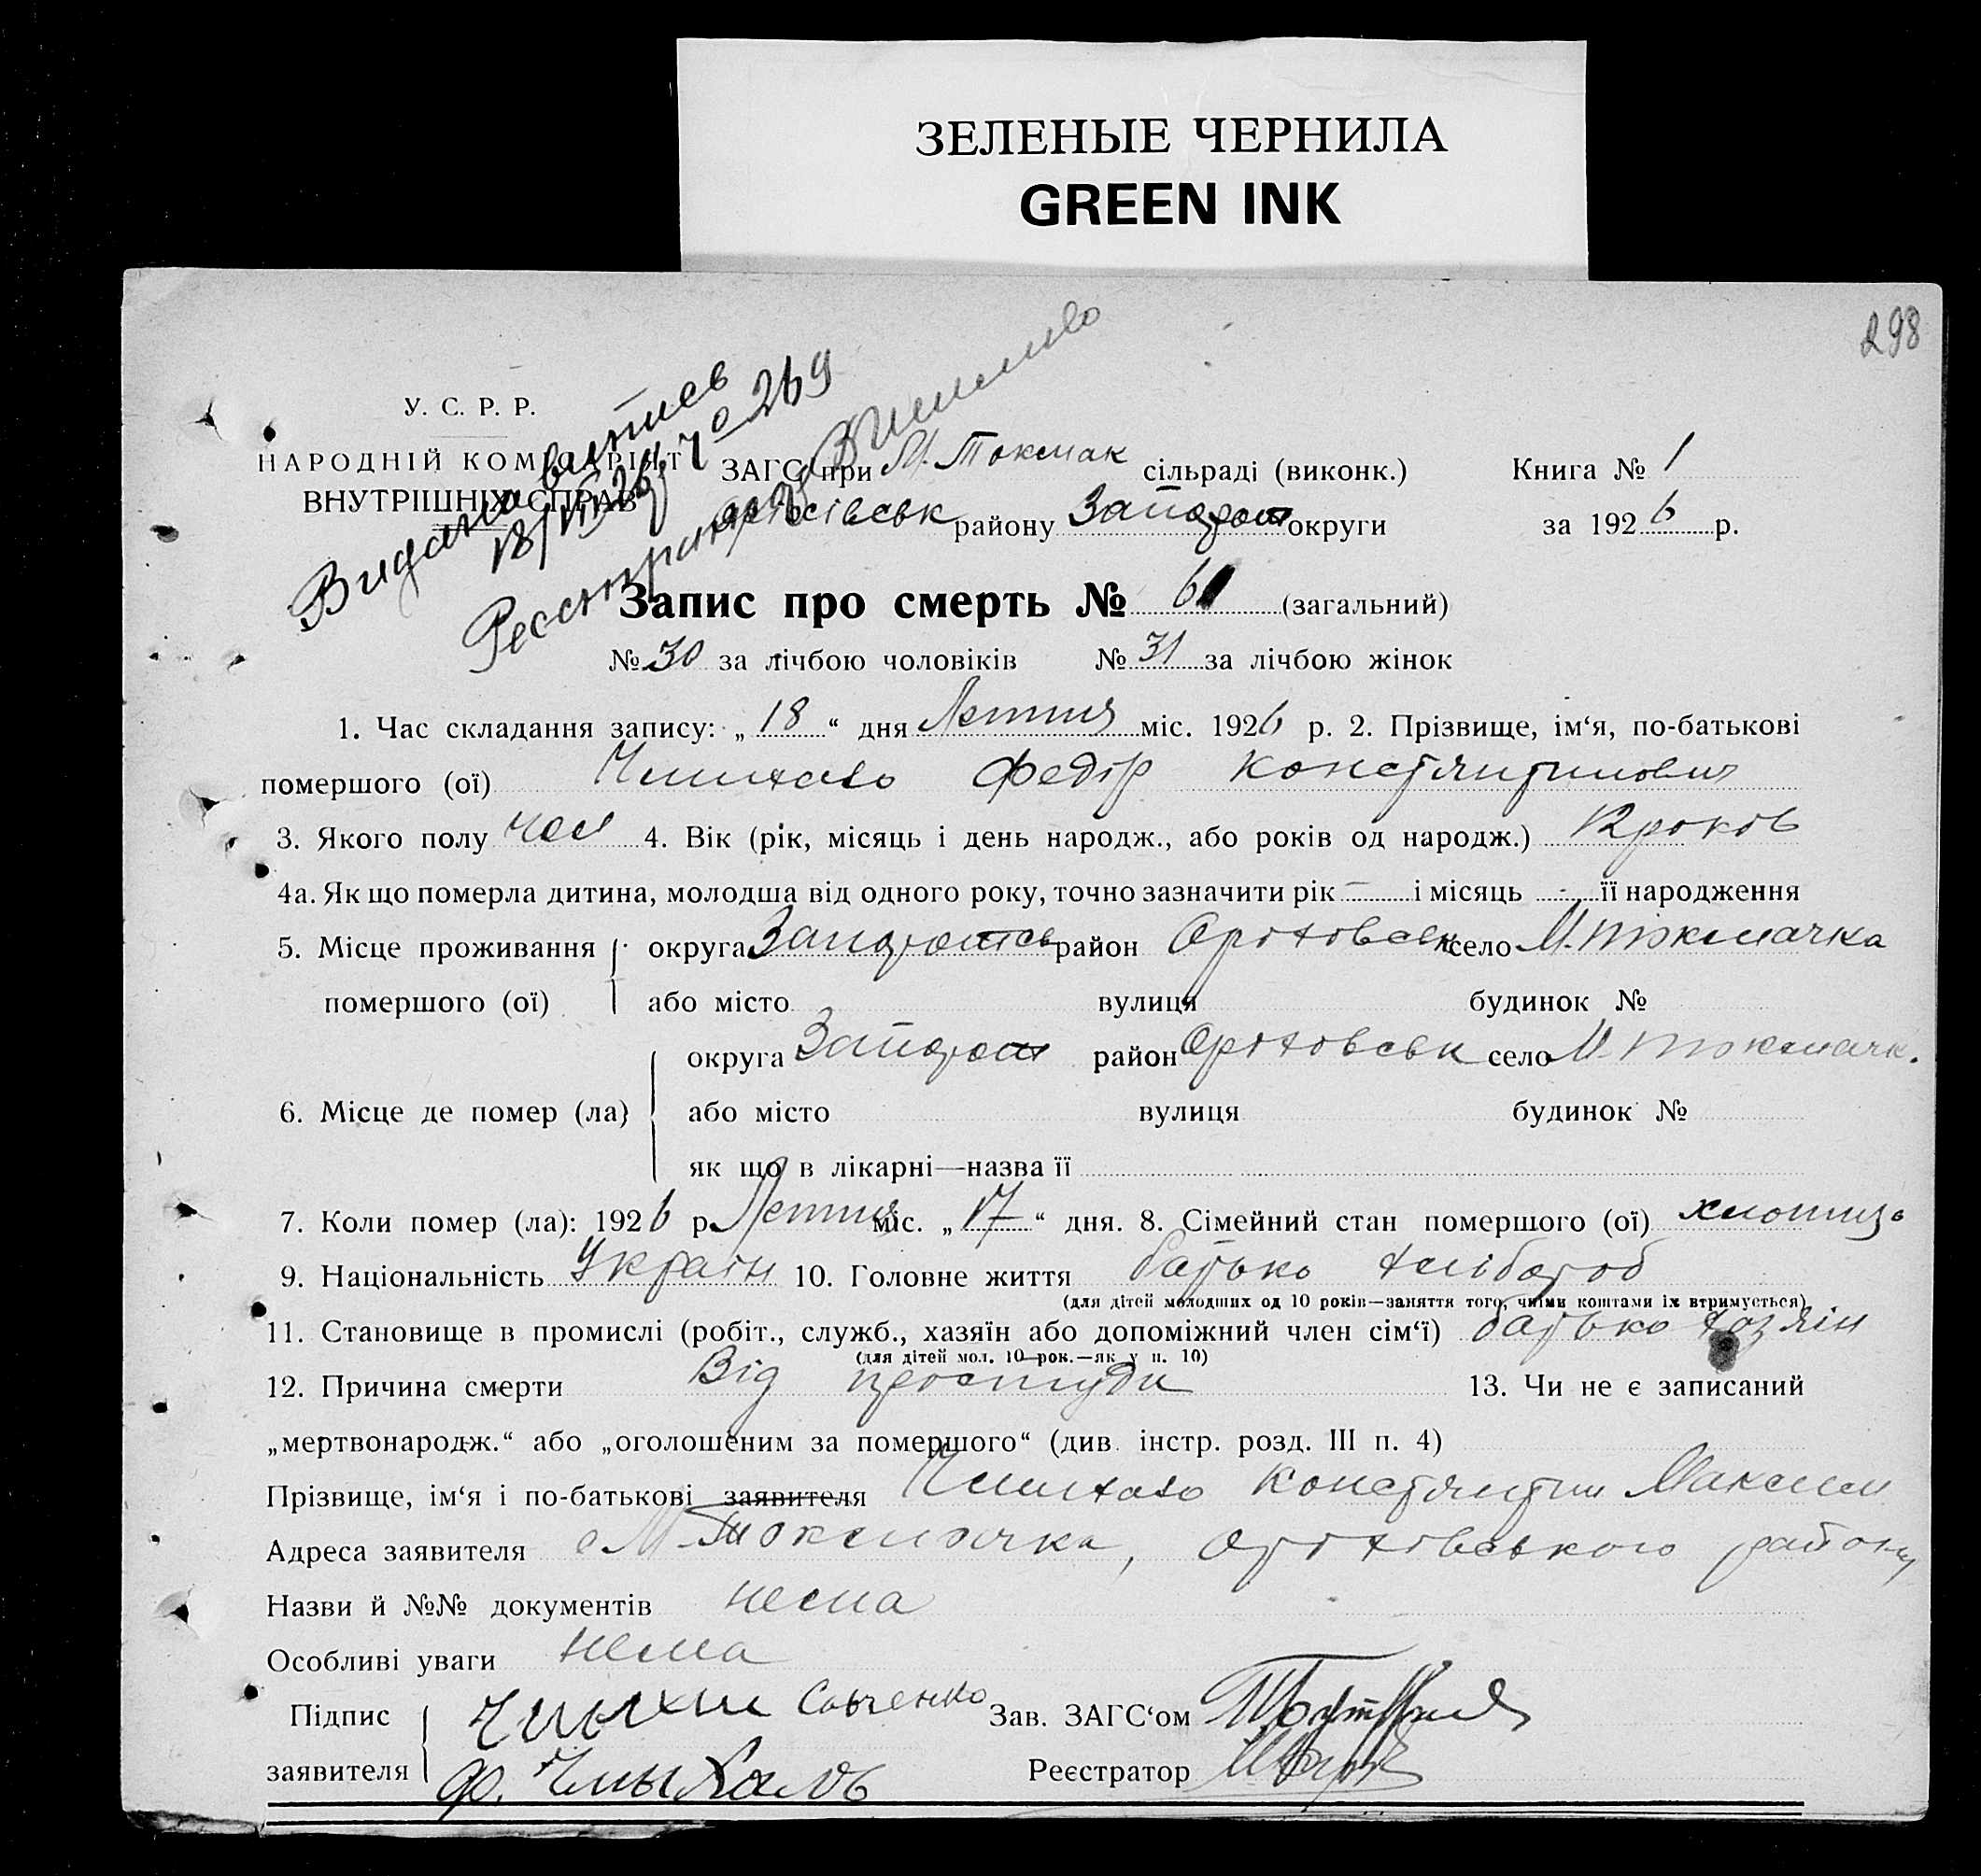 ЗЕЛЕНЫЕ ЧЕРНИЛА
GREEN INK
298
У. С. Р. Р.
НАРОДНІЙ КОМІСАРІЯТ
ВНУТРІШНІХ СПРАВ
Видана
18/VII 26 р. № 269
ЗАГС при М. Токмак сільраді (виконк.) Книга № 1
району Запорож округи за 1926 р.
Запис про смерть № 61 (загальний)
№ 30 за лічбою чоловіків № 31 за лічбою жінок
1. Час складання запису: „ 18 “ дня Лютия міс. 1926 р. 2. Прізвище, ім‘я, по-батькові
помершого (ої) Федір Констянтинович
3. Якого полу чол 4. Вік (рік, місяць і день народж., або років од народж.) 12 років
4а. Як що померла дитина, молодша від одного року, точно зазначити рік — і місяць - її народження
5. Місце проживання округа район Оріховськ село М. Токмачка
помершого (ої) або місто вулиця будинок №
округа Запорож район Оріховськ село М. Токмачк.
6. Місце де помер (ла) або місто вулиця будинок №
як що в лікарні—назва її
7. Коли помер (ла): 1926 р. міс. „ 17 “ дня. 8. Сімейний стан помершого (ої) хлопець
9. Національність Україн 10. Головне життя батько хлібороб
(для дітей молодших од 10 років—заняття того, чиїми коштами їх втримується)
11. Становище в промислі (робіт., служб., хазяїн або допоміжний член сім‘ї) батько хозяїн
(для дітей мол. 10 рок.—як у п. 10)
12. Причина смерти Від простуди 13. Чи не є записаний
„мертвонародж.“ або „оголошеним за помершого“ (див. інстр. розд. III п. 4)
Прізвище, ім‘я і по-батькові заявителя Констянтин Максим
Адреса заявителя с М-Токмачка, Оріхівського району
Назви й №№ документів нема
Особливі уваги нема
Підпис Савченко Зав. ЗАГС‘ом
заявителя Ф. Реєстратор